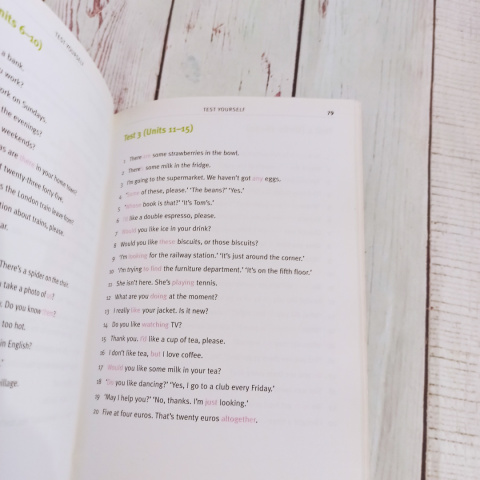 nits 6–10)
TEST YOURSELF
a bank.
work?
ork on Sundays.
the evenings?
weekends?
as are there in your home town?
twenty forty five.
s the London train leave from?
tion about trains, please.
ar.
There's a spider on the chair.
take a photo of us?
. Do you know them?
too hot.
in English?
village.
TEST YOURSELF 79
Test 3 (Units 11–15)
1 There are some strawberries in the bowl.
2 There's some milk in the fridge.
3 I'm going to the supermarket. We haven't got any eggs.
4 of these, please.' 'The beans?' 'Yes.'
5 'Whose book is that?' 'It's Tom's.'
6 I'd like a double espresso, please.
7 Would you like ice in your drink?
8 Would you like these biscuits, or those biscuits?
9 'I'm looking for the railway station.' 'It's just around the corner.'
10 'I'm trying to find the furniture department.' 'It's on the fifth floor.'
11 She isn't here. She's playing tennis.
12 What are you doing at the moment?
13 I really like your jacket. Is it new?
14 Do you like watching TV?
15 Thank you. I'd like a cup of tea, please.
16 I don't like tea, but I love coffee.
17 Would you like some milk in your tea?
18 'Do you like dancing?' 'Yes, I go to a club every Friday.'
19 'May I help you?' 'No, thanks. I'm just looking.'
20 Five at four euros. That's twenty euros altogether.